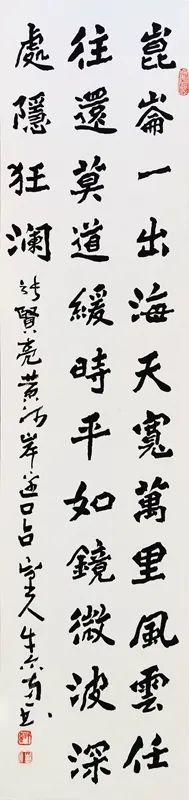 崑崙一出海天寬萬里風雲任
往還莫道緩時平如鏡微波深
處隱狂瀾
賢亮黃河岸邊口占